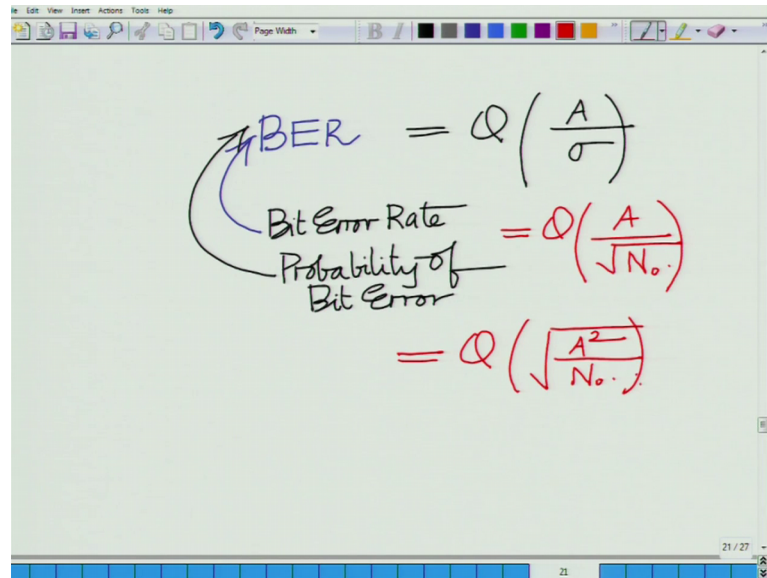 File Edit View Insert Actions Tools Help
Page Width
B I
BER = Q ( A / σ )
Bit Error Rate = Q ( A / √N₀ )
Probability of
Bit Error
= Q ( √( A² / N₀ ) )
21 / 27
21